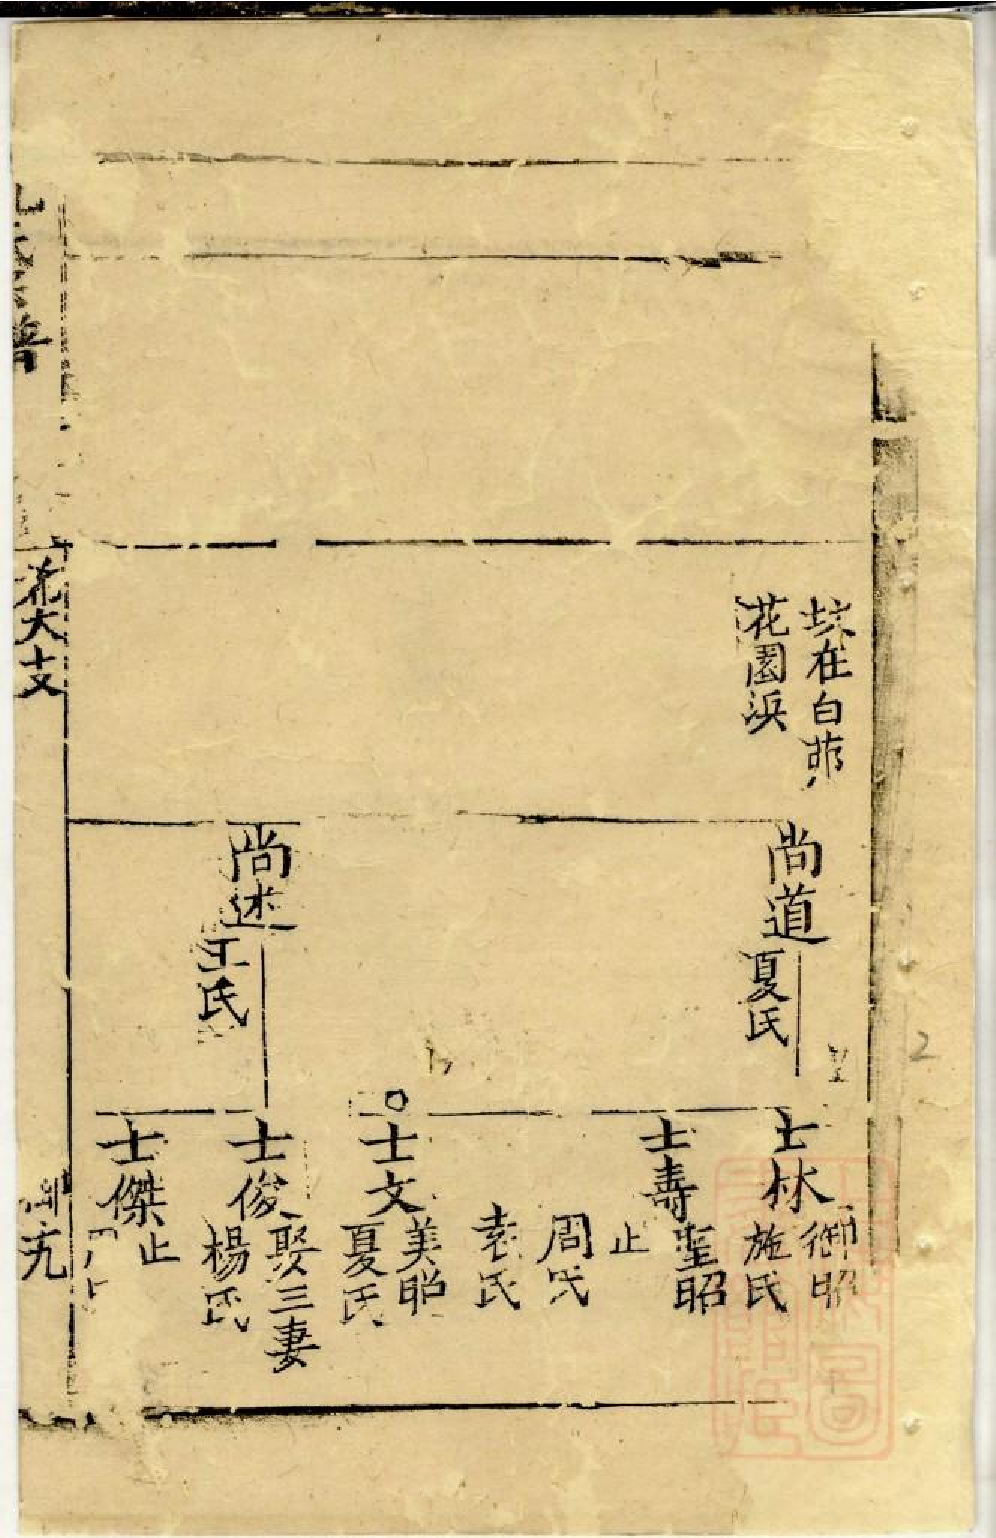 坟在白茆
花園浜
尚道
夏氏
尚述
王氏
士林
御昭
施氏
士壽
聖昭
止
周氏
袁氏
士文
美昭
夏氏
士俊
娶三妻
楊氏
士傑
止
氏宗譜
大士文